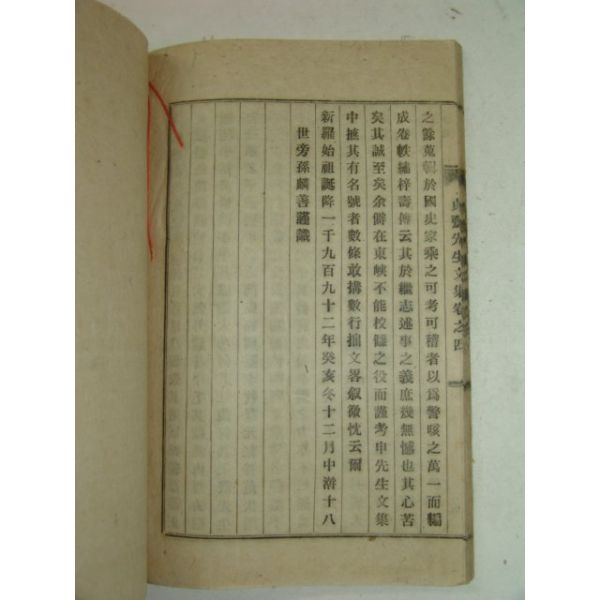 之餘蒐輯於國史家乘之可考可稽者以爲警咳之萬一而編
成卷軼繡梓壽傳云其於繼志述事之義庶幾無憾也其心苦
矣其誠至矣余僻在東峽不能校讎之役而謹考申先生文集
中摭其有名號者數條敢搆數行拙文畧叙微忱云爾
新羅始祖誕降一千九百九十二年癸亥冬十二月中澣十八
世旁孫麟善謹識
先生文集卷之四